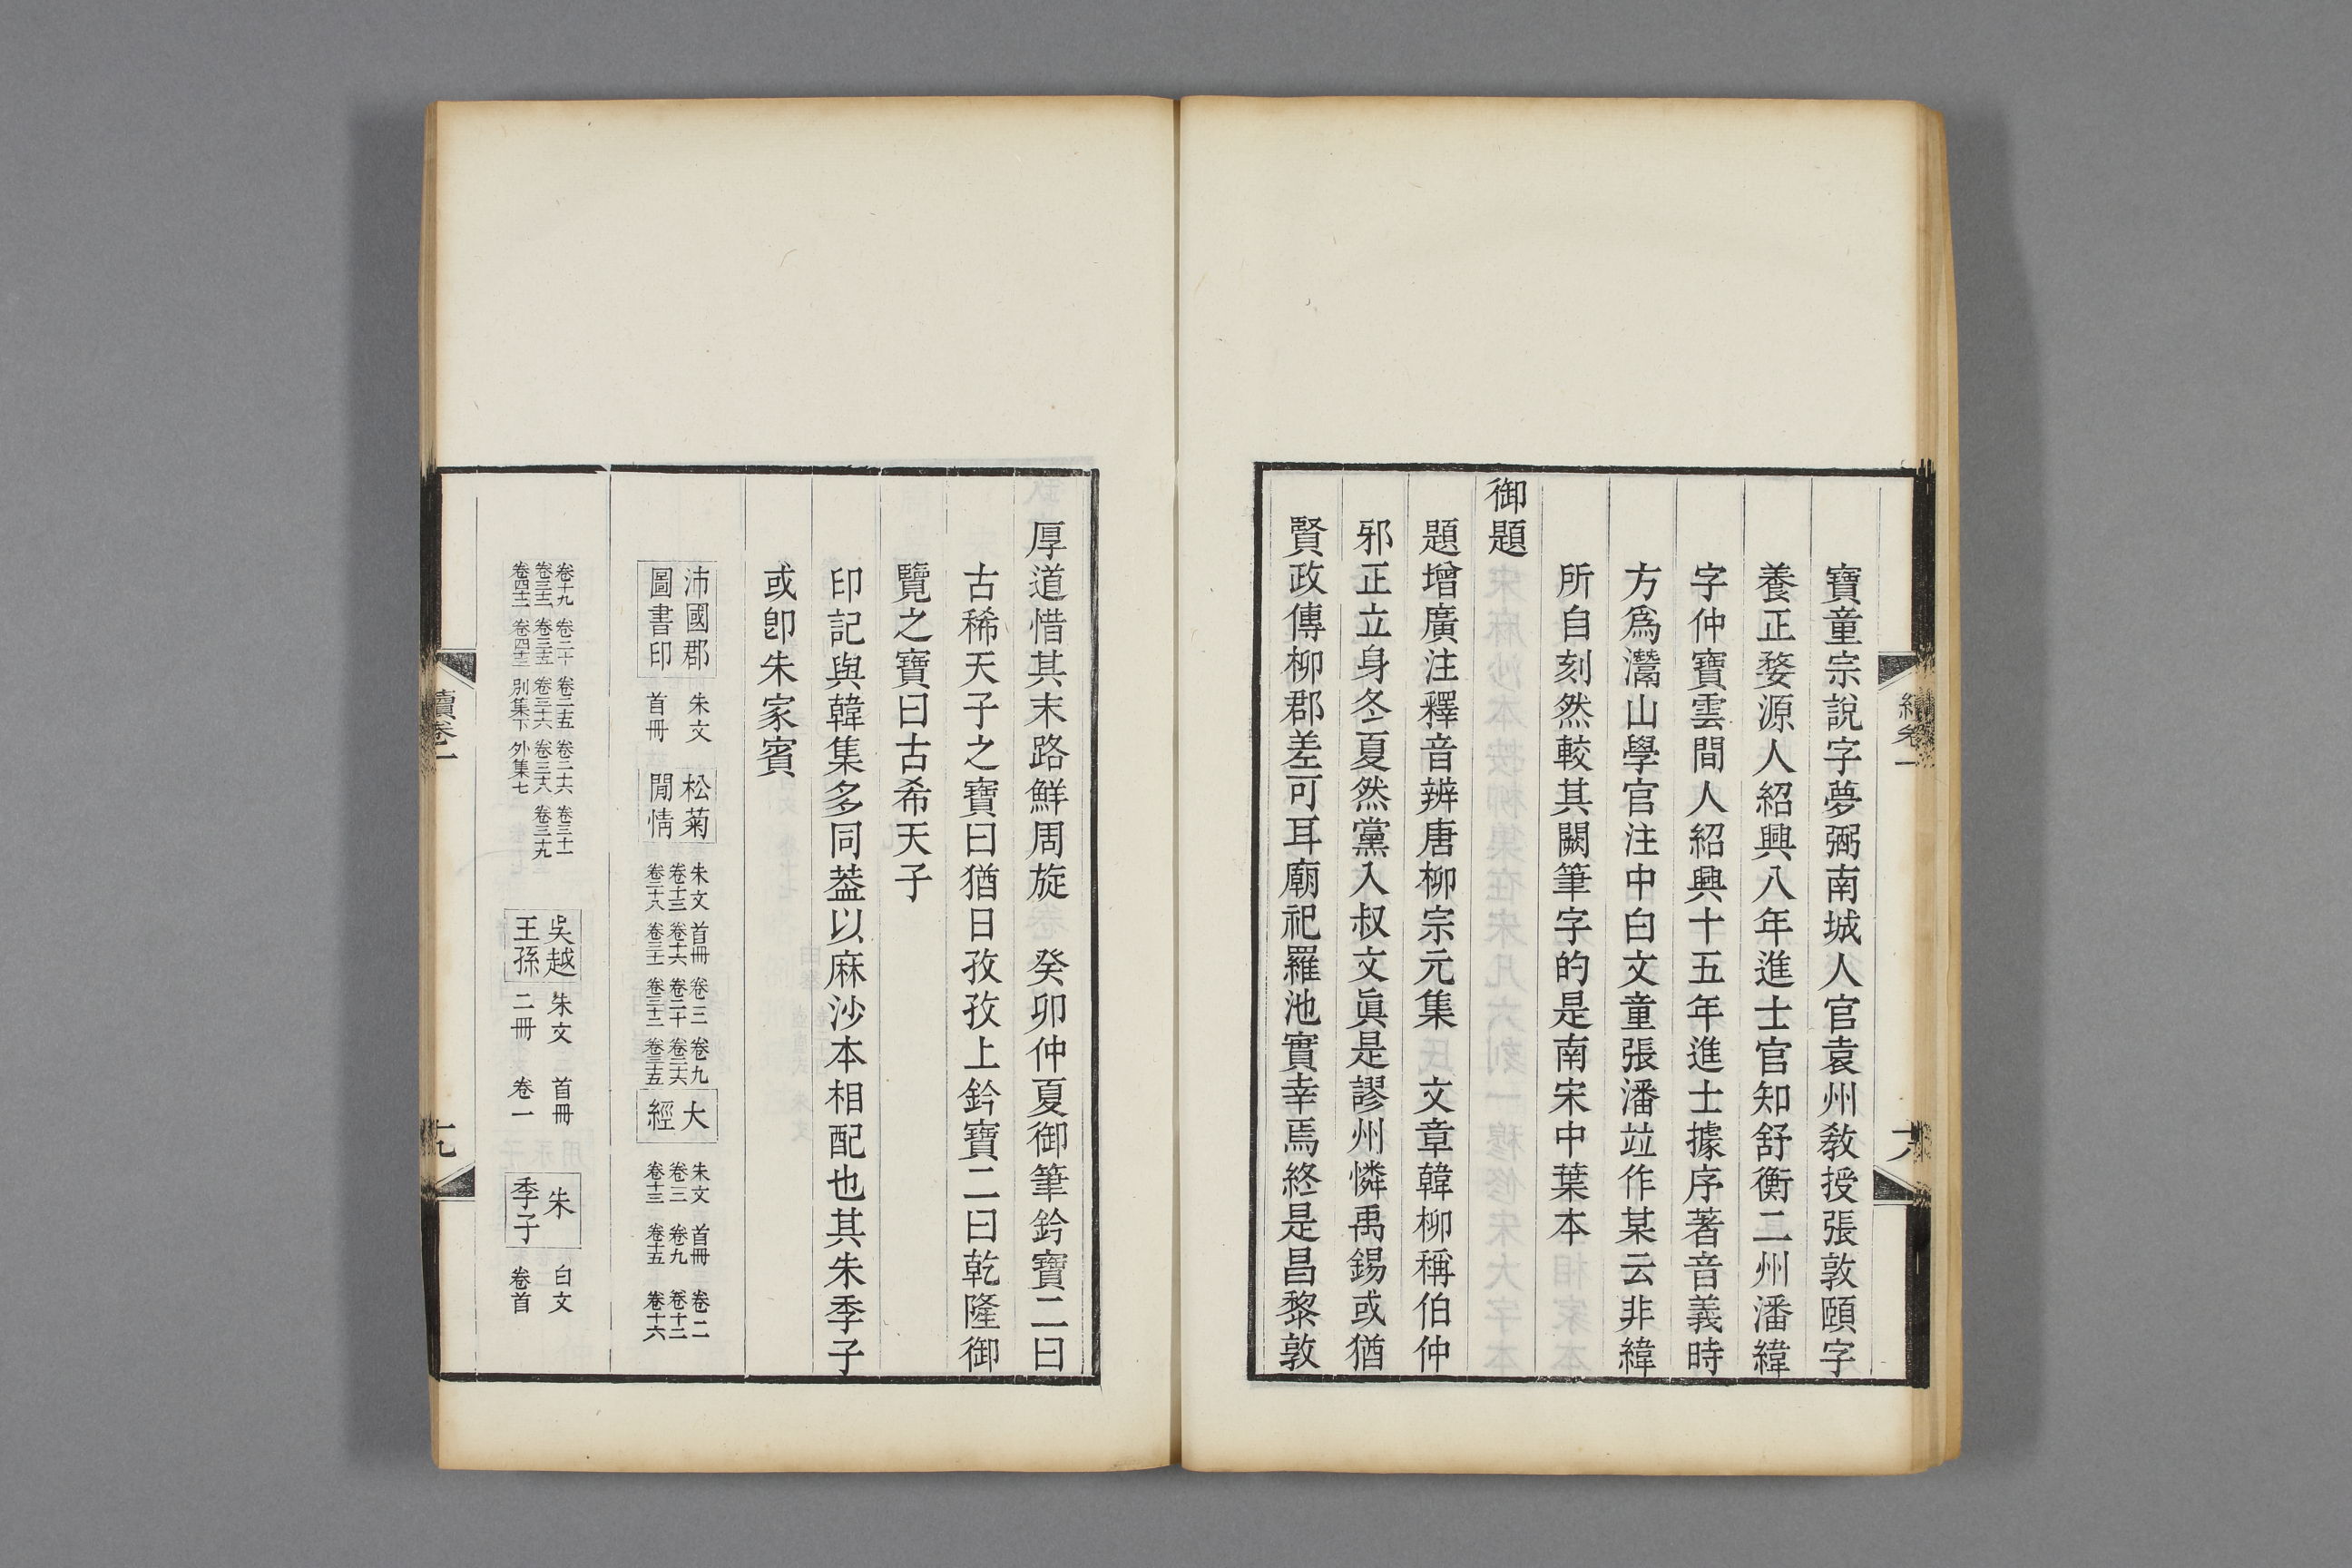 寶童宗說字夢弼南城人官袁州教授張敦頤字
養正婺源人紹興八年進士官知舒衡二州潘緯
字仲寶雲間人紹興十五年進士據序著音義時
方爲灊山學官注中白文童張潘竝作某云非緯
所自刻然較其闕筆字的是南宋中葉本
御題
題增廣注釋音辨唐柳宗元集　文章韓柳稱伯仲
邪正立身冬夏然黨入叔文眞是謬州憐禹錫或猶
賢政傳柳郡差可耳廟祀羅池實幸焉終是昌黎敦
厚道惜其末路鮮周旋　癸卯仲夏御筆鈐寶二曰
古稀天子之寶曰猶日孜孜上鈐寶二曰乾隆御
覽之寶曰古希天子
印記與韓集多同葢以麻沙本相配也其朱季子
或卽朱家賓
沛國郡圖書印
朱文
首冊
松菊閒情
朱文 首冊 卷二 卷九
卷十三 卷十六 卷二十 卷二六
卷二十八 卷三十 卷三十二 卷三十五
大經
朱文 首冊 卷二
卷三 卷九 卷十二
卷十三 卷十五 卷十六
卷十九 卷二十 卷二十五 卷二十六 卷三十一
卷三十三 卷三十五 卷三十六 卷三十八 卷三十九
卷四十二 卷四十三 別集下 外集七
吳越王孫
朱文 首冊
二冊 卷一
朱季子
白文
卷首
續卷一